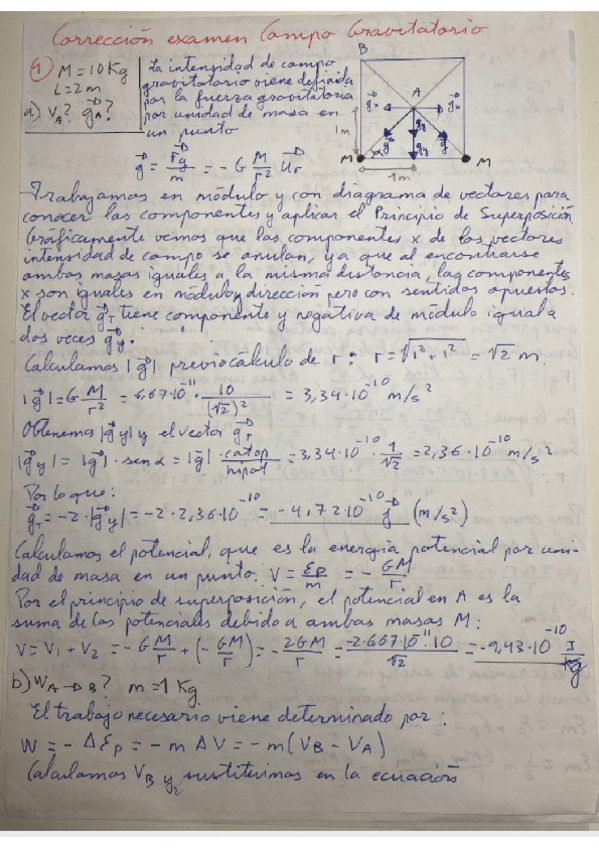 Corrección examen Campo Gravitatorio
1) M = 10 Kg
L = 2 m
a) V_A? g⃗_A?
La intensidad de campo
gravitatorio viene definida
por la fuerza gravitatoria
por unidad de masa en
un punto
B
A
g⃗x g⃗x
g⃗ g⃗y g⃗
g⃗y
1m
α
M M
1m
g⃗ = F⃗g/m = - G M/r² u⃗r
Trabajamos en módulo y con diagrama de vectores para
conocer las componentes y aplicar el Principio de Superposición
Gráficamente vemos que las componentes x de los vectores
intensidad de campo se anulan, ya que al encontrarse
ambas masas iguales a la misma distancia, las componentes
x son iguales en módulo y dirección pero con sentidos opuestos.
El vector g⃗T tiene componente y negativa de módulo igual a
dos veces g⃗y.
Calculamos |g⃗| previo cálculo de r: r = √(1² + 1²) = √2 m
|g⃗| = G M/r² = 6,67·10⁻¹¹ · 10/(√2)² = 3,34·10⁻¹⁰ m/s²
Obtenemos |g⃗y| y el vector g⃗T
|g⃗y| = |g⃗| · sen α = |g⃗| · catop/hipot = 3,34·10⁻¹⁰ · 1/√2 = 2,36·10⁻¹⁰ m/s²
Por lo que:
g⃗T = -2·|g⃗y| = -2·2,36·10⁻¹⁰ = -4,72·10⁻¹⁰ j⃗ (m/s²)
Calculamos el potencial, que es la energía potencial por uni-
dad de masa en un punto. V = Ep/m = - GM/r
Por el principio de superposición, el potencial en A es la
suma de los potenciales debido a ambas masas M:
V = V1 + V2 = - GM/r + (- GM/r) = - 2GM/r = -2·6,67·10⁻¹¹·10/√2 = -9,43·10⁻¹⁰ J/Kg
b) W A→B? m = 1 Kg
El trabajo necesario viene determinado por:
W = - ΔEp = - m ΔV = - m (VB - VA)
Calculamos VB y sustituimos en la ecuación